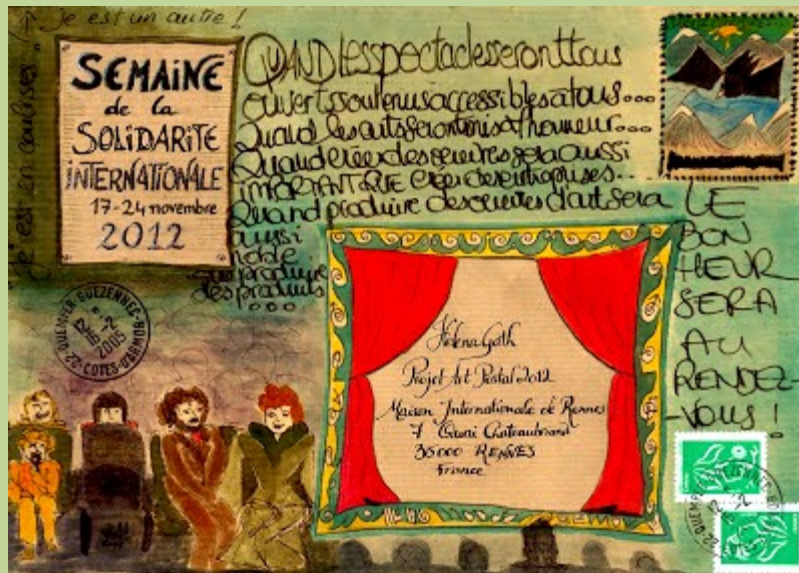 je est un autre !
SEMAINE
de la
SOLIDARITE
INTERNATIONALE
17-24 novembre
2012
QUAND les spectacles seront tous
ouverts soutenus accessibles à tous...
Quand les arts seront mis à l'honneur...
Quand créer des oeuvres sera aussi
IMPORTANT QUE créer des entreprises...
Quand produire des oeuvres d'art sera
aussi
noble
que produire
des produits
...
LE
BON
HEUR
SERA
AU
RENDEZ-
VOUS !
QUEMPER-GUEZENNEC-BOURG
2005
22-COTES-D'ARMOR
Helena Gath
Projet Art Postal 2012
Maison Internationale de Rennes
7 Quai Chateaubriand
35000 RENNES
France